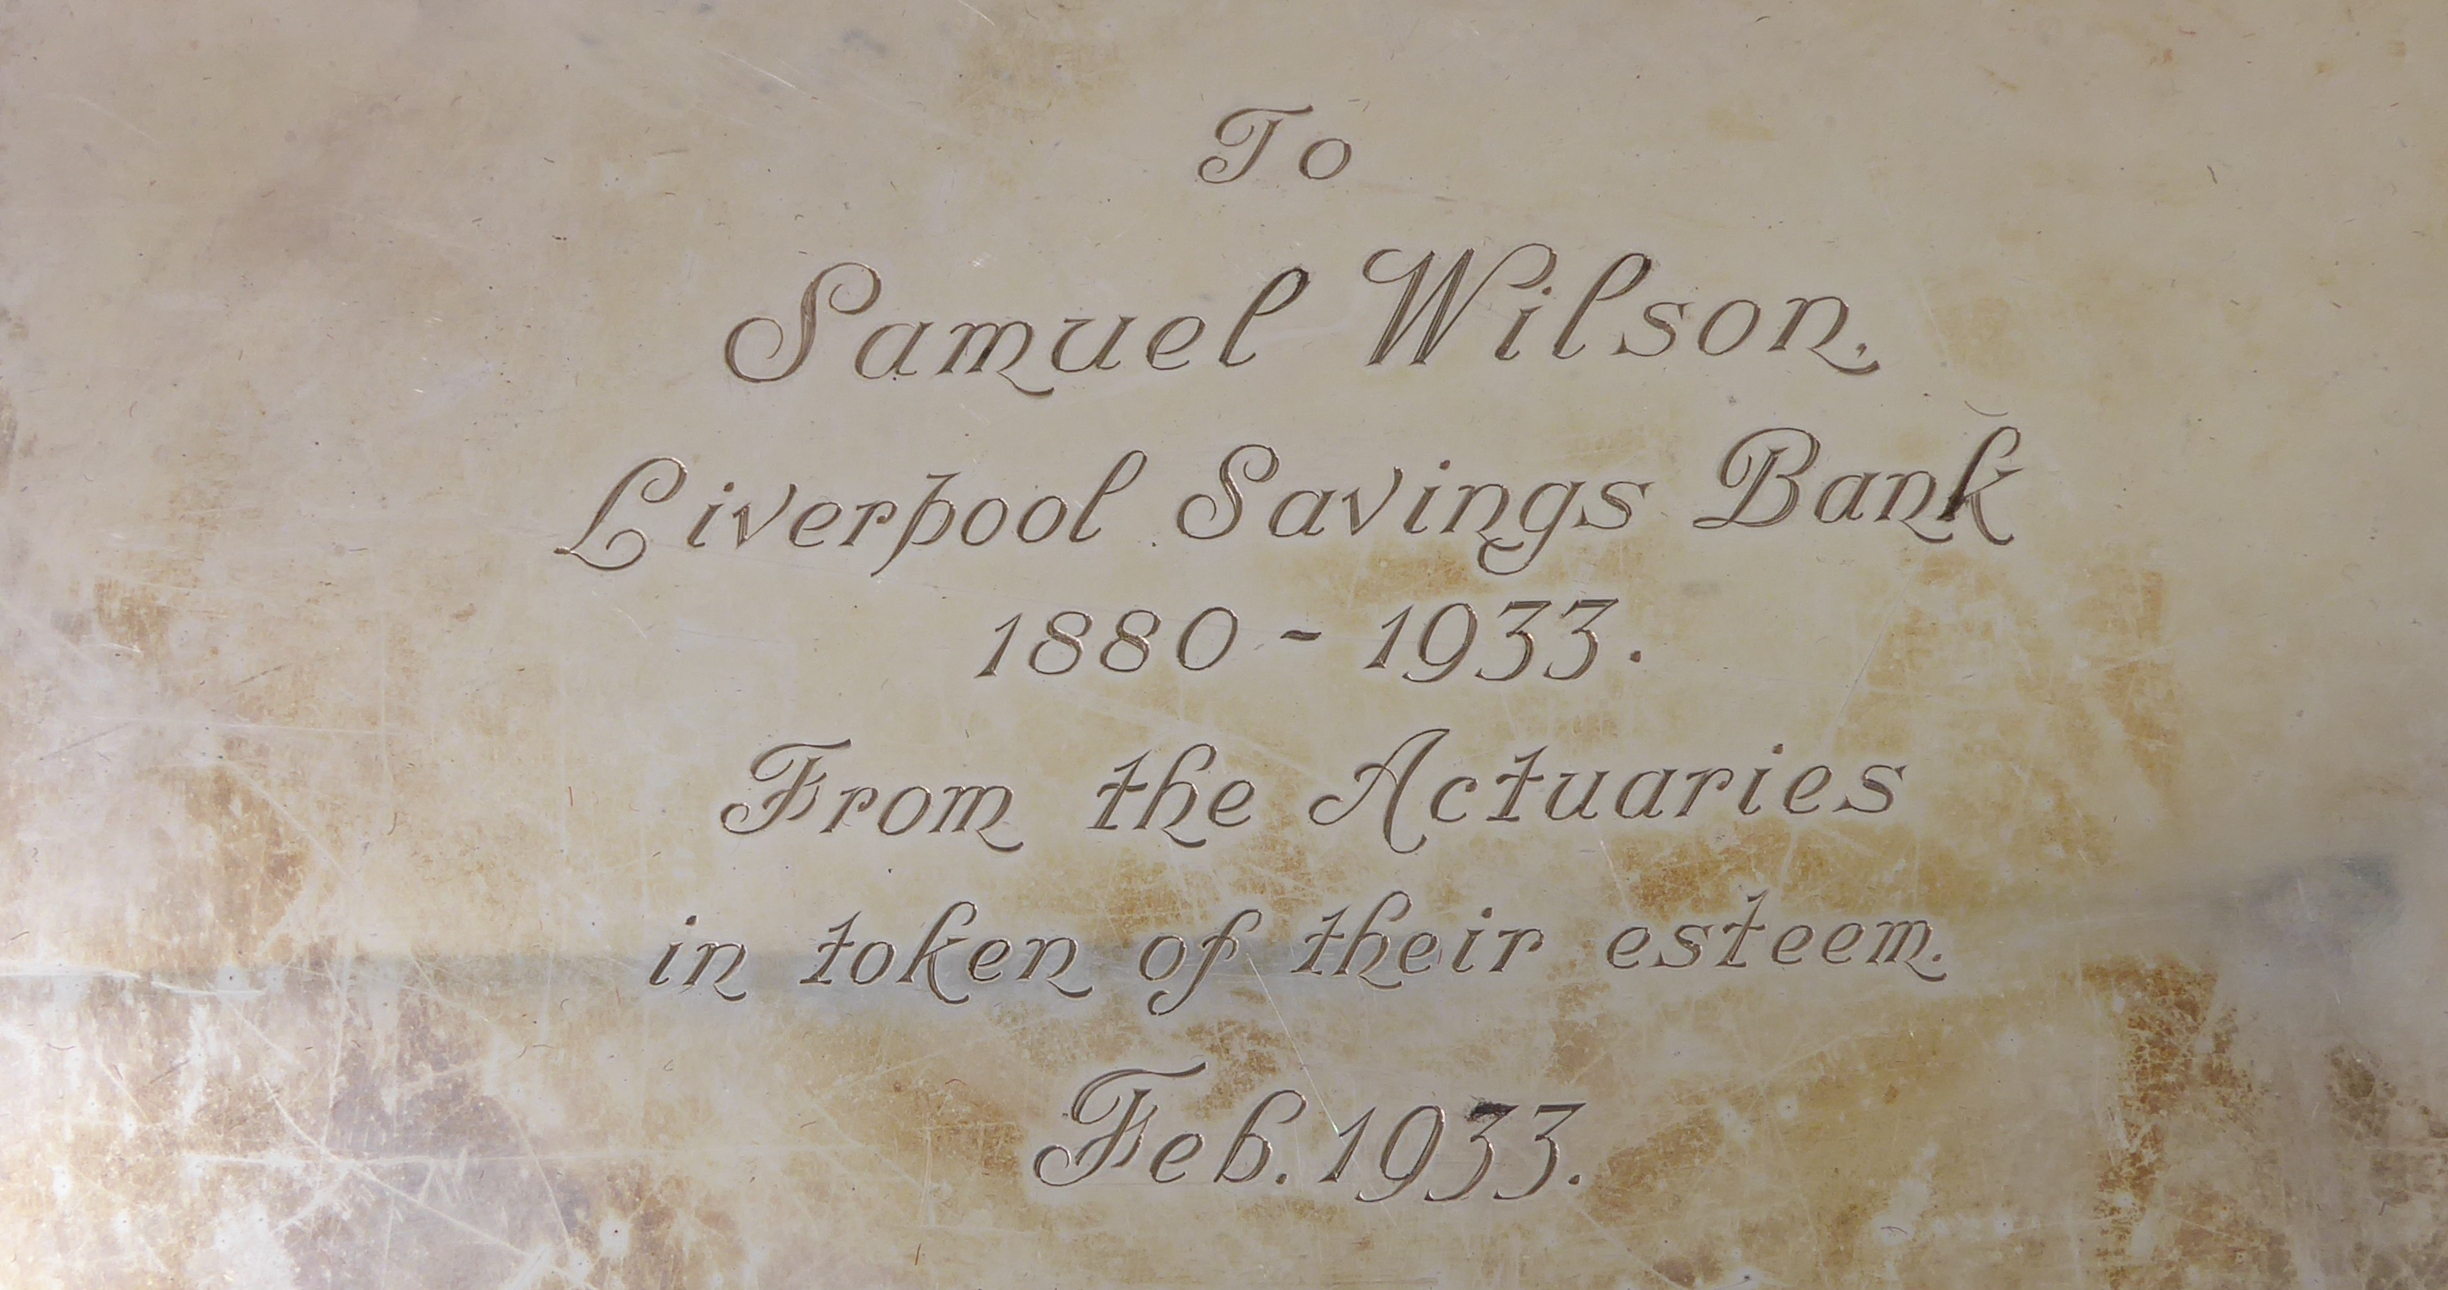 To
Samuel Wilson.
Liverpool Savings Bank
1880 - 1933.
From the Actuaries
in token of their esteem.
Feb. 1933.